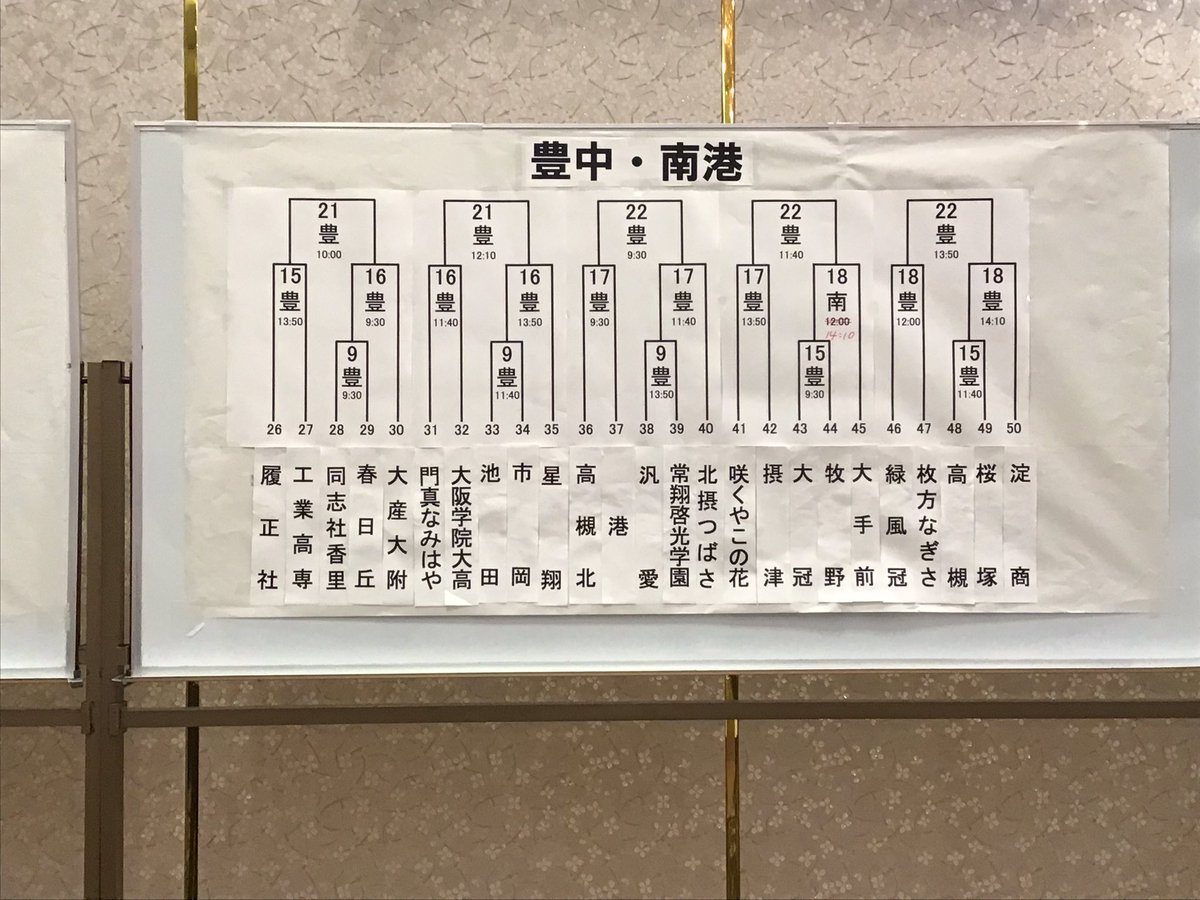 豊中・南港
21 21 22 22 22
豊 豊 豊 豊 豊
10:00 12:10 9:30 11:40 13:50
15 16 16 16 17 17 17 18 18 18
豊 豊 豊 豊 豊 豊 豊 南 豊 豊
13:50 9:30 11:40 13:50 9:30 11:40 13:50 12:00 12:00 14:10
14:10
9 9 9 15 15
豊 豊 豊 豊 豊
9:30 11:40 13:50 9:30 11:40
26 27 28 29 30 31 32 33 34 35 36 37 38 39 40 41 42 43 44 45 46 47 48 49 50
履正社
工業高専
同志社香里
春日丘
大産大附
門真なみはや
大阪学院大高
池田
市岡
星翔
高槻北
港
汎愛
常翔啓光学園
北摂つばさ
咲くやこの花
摂津
大冠
牧野
大手前
緑風冠
枚方なぎさ
高槻
桜塚
淀商